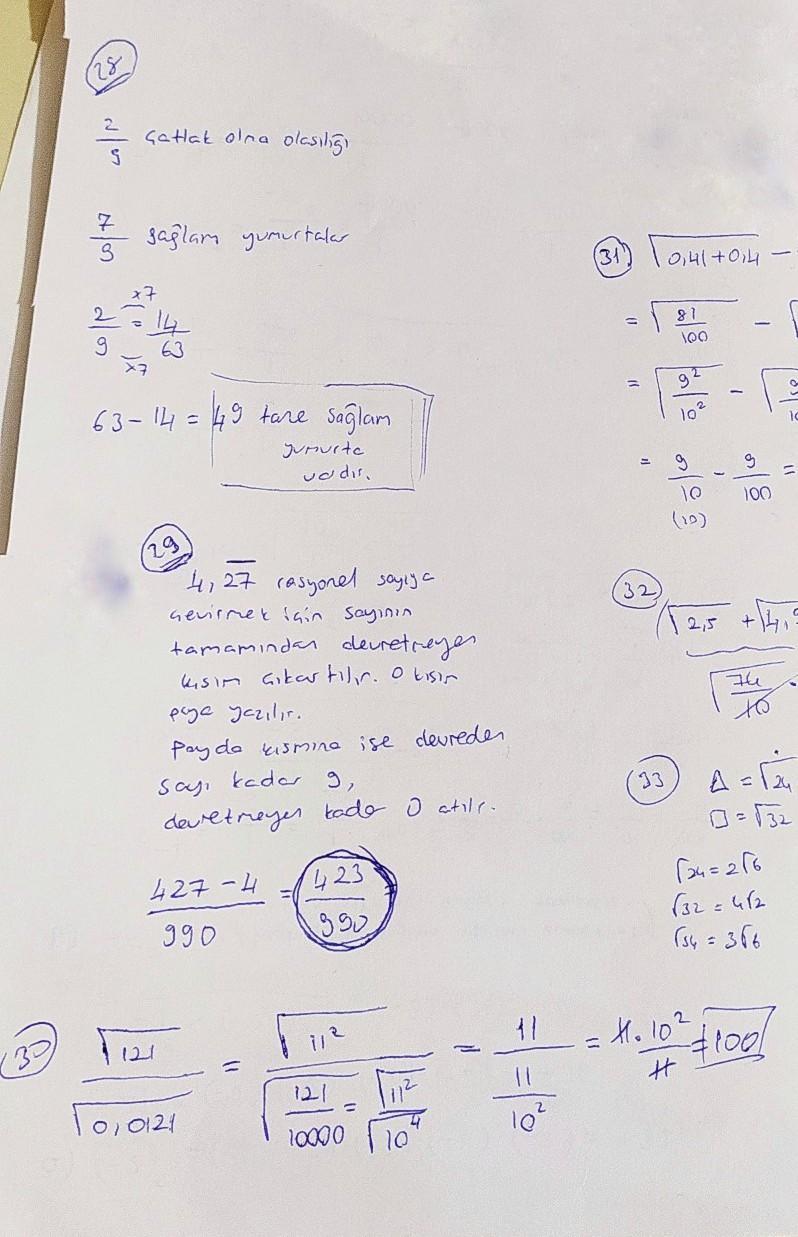 28
2/9 Çatlak olma olasılığı
7/9 sağlam yumurtalar
x7
2/9 = 14/63
x7
63 - 14 = 49 tane sağlam
yumurta
vardır.
29
4,2̅7̅ rasyonel sayıya
çevirmek için sayının
tamamından devretmeyen
kısım çıkartılır. O kısım
paya yazılır.
Payda kısmına ise devreden
sayı kadar 9,
devretmeyen kadar 0 atılır.
(427 - 4)/990 = 423/990
30
√121/√0,0121 = √11²/√(121/10000) = √11²/√10⁴ = 11/(11/10²) = 11.10²/11 = 100
31) √0,41+0,4 -
= √(81/100) - √
= √(9²/10²) - √
= 9/10 - 9/100 =
(10)
32
√2,5 + √4,9
√(74/10)
33 Δ = √24
□ = √32
√24 = 2√6
√32 = 4√2
√54 = 3√6